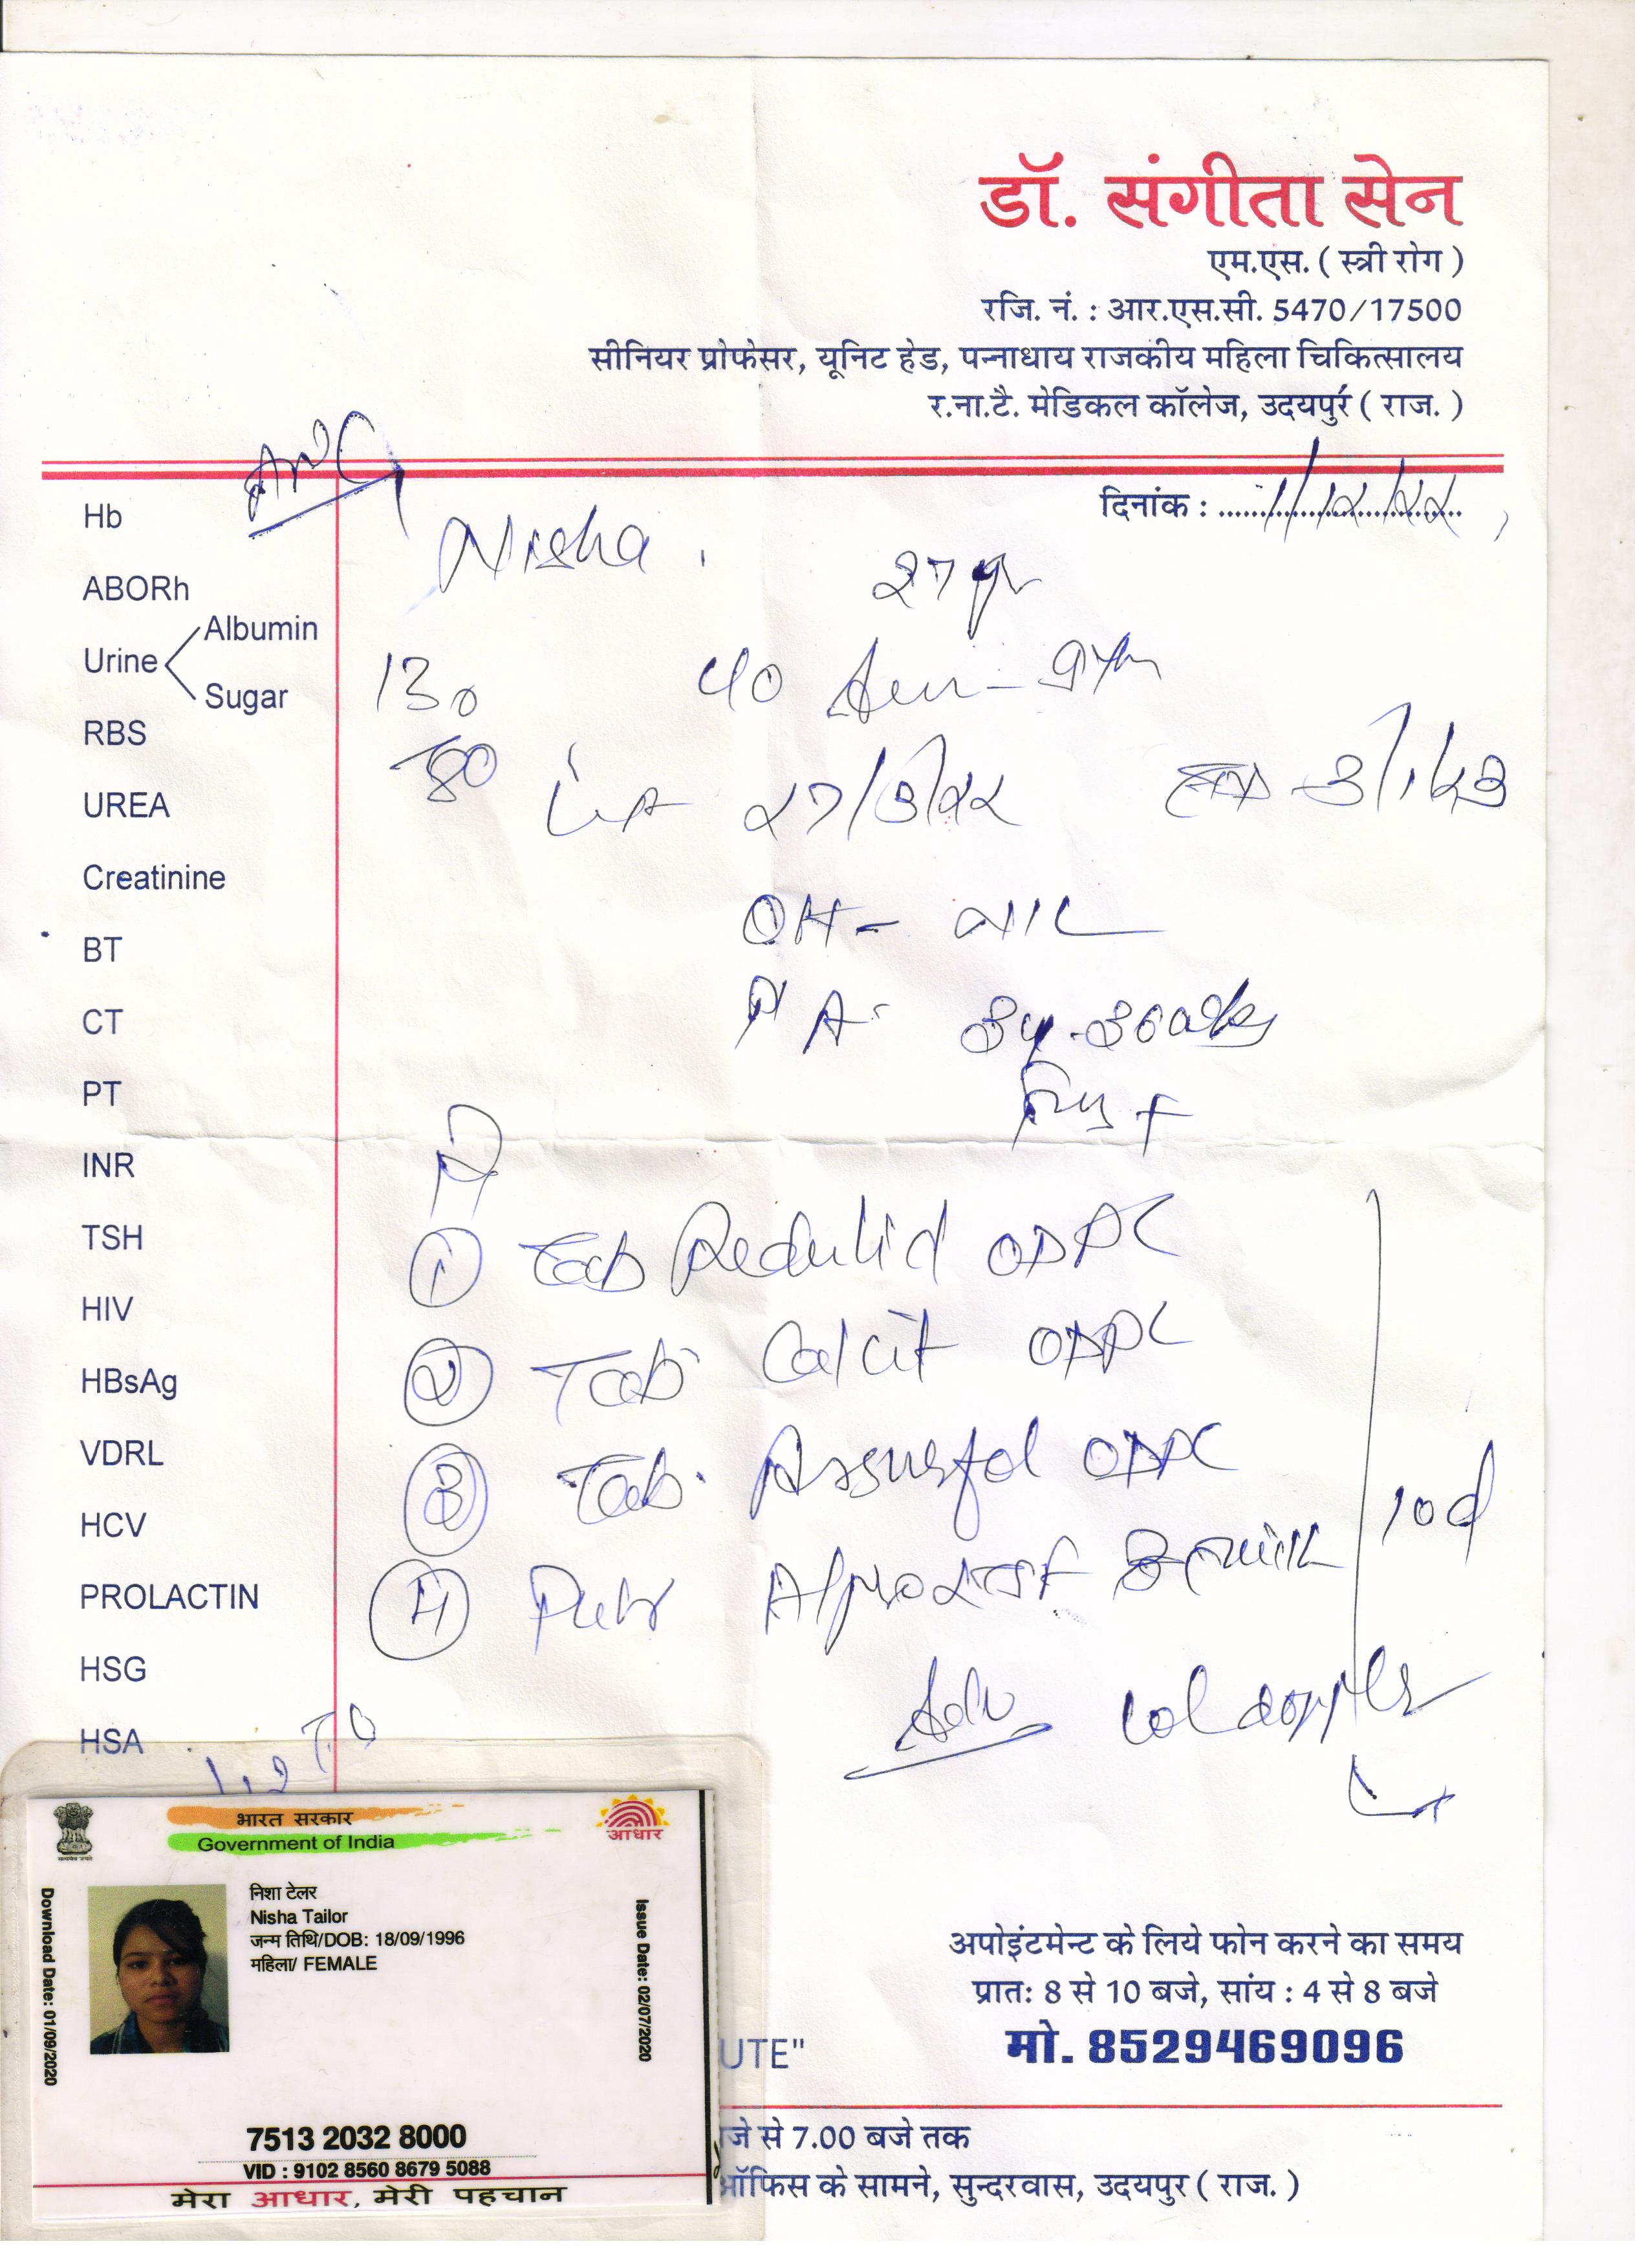 डॉ. संगीता सेन
एम.एस. ( स्त्री रोग )
रजि. नं. : आर.एस.सी. 5470/17500
सीनियर प्रोफेसर, यूनिट हेड, पन्नाधाय राजकीय महिला चिकित्सालय
र.ना.टै. मेडिकल कॉलेज, उदयपुर ( राज. )
ANC
दिनांक : 1/12/22
Hb
Nisha
27 yr
ABORh
Urine Albumin
Sugar
130
80
RBS
UREA
27/3/22
3/1/23
Creatinine
OH - NIL
BT
P/A-
CT
PT
INR
TSH
① Tab Redulid OD PC
HIV
② Tab Calcit OD PC
HBsAg
VDRL
③ Tab. OD PC
10 d
HCV
④
PROLACTIN
HSG
Adv Col doppler
HSA
भारत सरकार
Government of India
आधार
Download Date: 01/09/2020
निशा टेलर
Nisha Tailor
जन्म तिथि/DOB: 18/09/1996
महिला/ FEMALE
Issue Date: 02/07/2020
7513 2032 8000
VID : 9102 8560 8679 5088
मेरा आधार, मेरी पहचान
अपोइंटमेन्ट के लिये फोन करने का समय
प्रातः 8 से 10 बजे, सांय : 4 से 8 बजे
मो. 8529469096
UTE"
जे से 7.00 बजे तक
ऑफिस के सामने, सुन्दरवास, उदयपुर ( राज. )